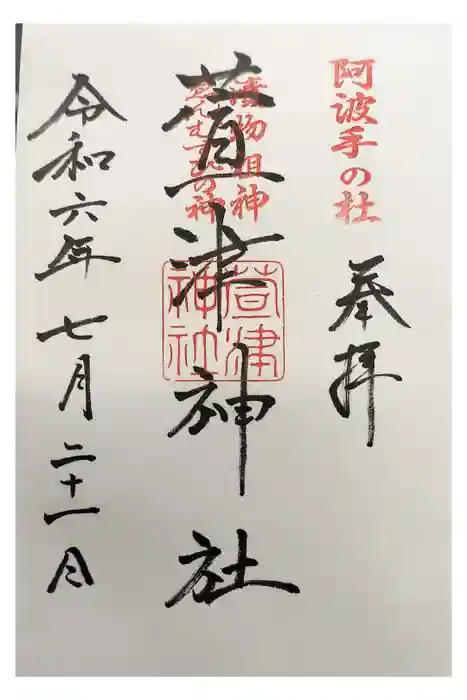 阿波手の杜
奉拝
漬物祖神
ゑんむすびの神
萱津神社
萱津神社
令和六年七月二十一日